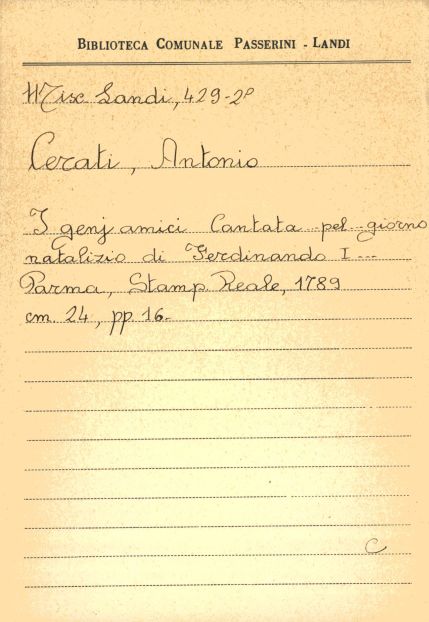 BIBLIOTECA COMUNALE PASSERINI - LANDI
Misc Landi, 429-2º
Cerati, Antonio
I genj amici Cantata pel giorno
natalizio di Ferdinando I ...
Parma, Stamp. Reale, 1789
cm. 24, pp 16-
C